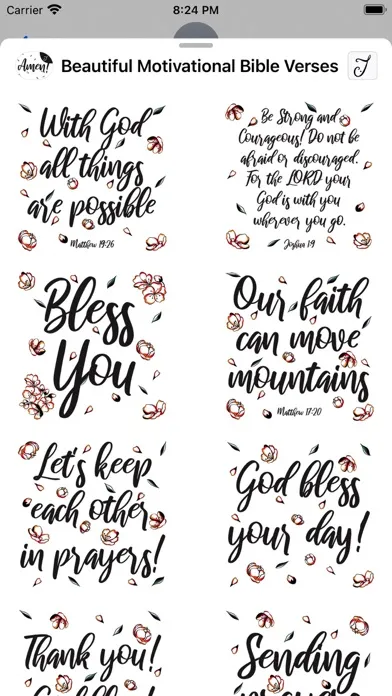 Carrier 8:24 PM
Amen!
Beautiful Motivational Bible Verses
J
With God
all things
are possible
Matthew 19:26
Be Strong and
Courageous! Do not be
afraid or discouraged.
For the LORD your
God is with you
wherever you go.
Joshua 1:9
Bless
You
Our faith
can move
mountains
Matthew 17:20
Let's keep
each other
in prayers!
God bless
your day!
Thank you!
Sending